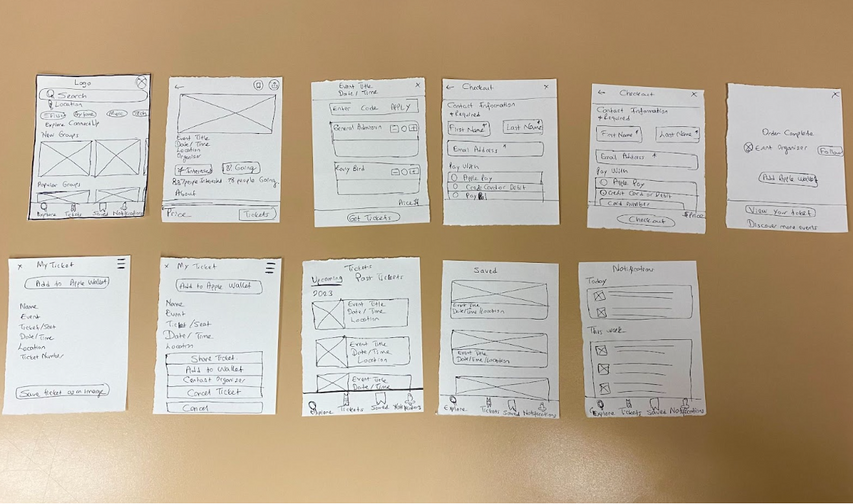 Logo
Search
Location
Explore
New Groups
Popular Groups
Explore Tickets Saved Notifications
Event Title
Date/ Time
Location
Organizer
Interested
Going
About
Price
Tickets
Event Title
Date/ Time
Enter Code APPLY
General Admission
Early Bird
Price
Get Tickets
Checkout
Contact Information
* Required
First Name *
Last Name *
Email Address *
Pay With
Apple Pay
Credit Card or Debit
Pay
Checkout
Contact Information
* Required
First Name *
Last Name *
Email Address *
Pay With
Apple Pay
Credit Card or Debit
Card Number
Checkout
$Price
Order Complete
Event Organizer
Follow
Add Apple Wallet
View your ticket
Discover more events
My Ticket
Add to Apple Wallet
Name
Event
Ticket/Seat
Date/ Time
Location
Ticket Number
Save ticket as an image
My Ticket
Add to Apple Wallet
Name
Event
Ticket/Seat
Date/ Time
Location
Share Ticket
Add to Wallet
Contact Organizer
Cancel Ticket
Cancel
Tickets
Upcoming Past Tickets
2023
Event Title
Date/ Time
Location
Event Title
Date/Time
Location
Event Title
Date/ Time
Explore Tickets Saved Notifications
Saved
Event Title
Date/Time/Location
Event Title
Date/Time/Location
Explore Tickets Saved Notifications
Notifications
Today
This week
Explore Tickets Saved Notifications